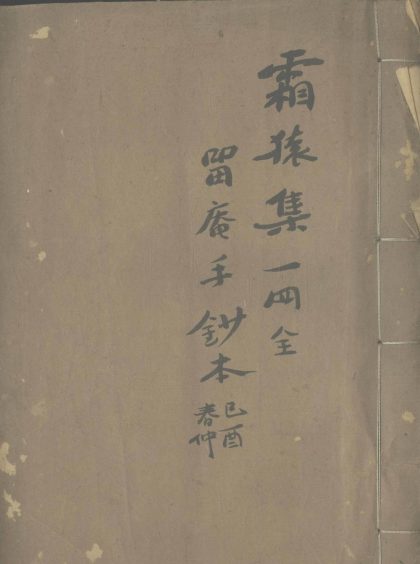 霜猿集 一冊全
畱庵手鈔本
己酉
春仲